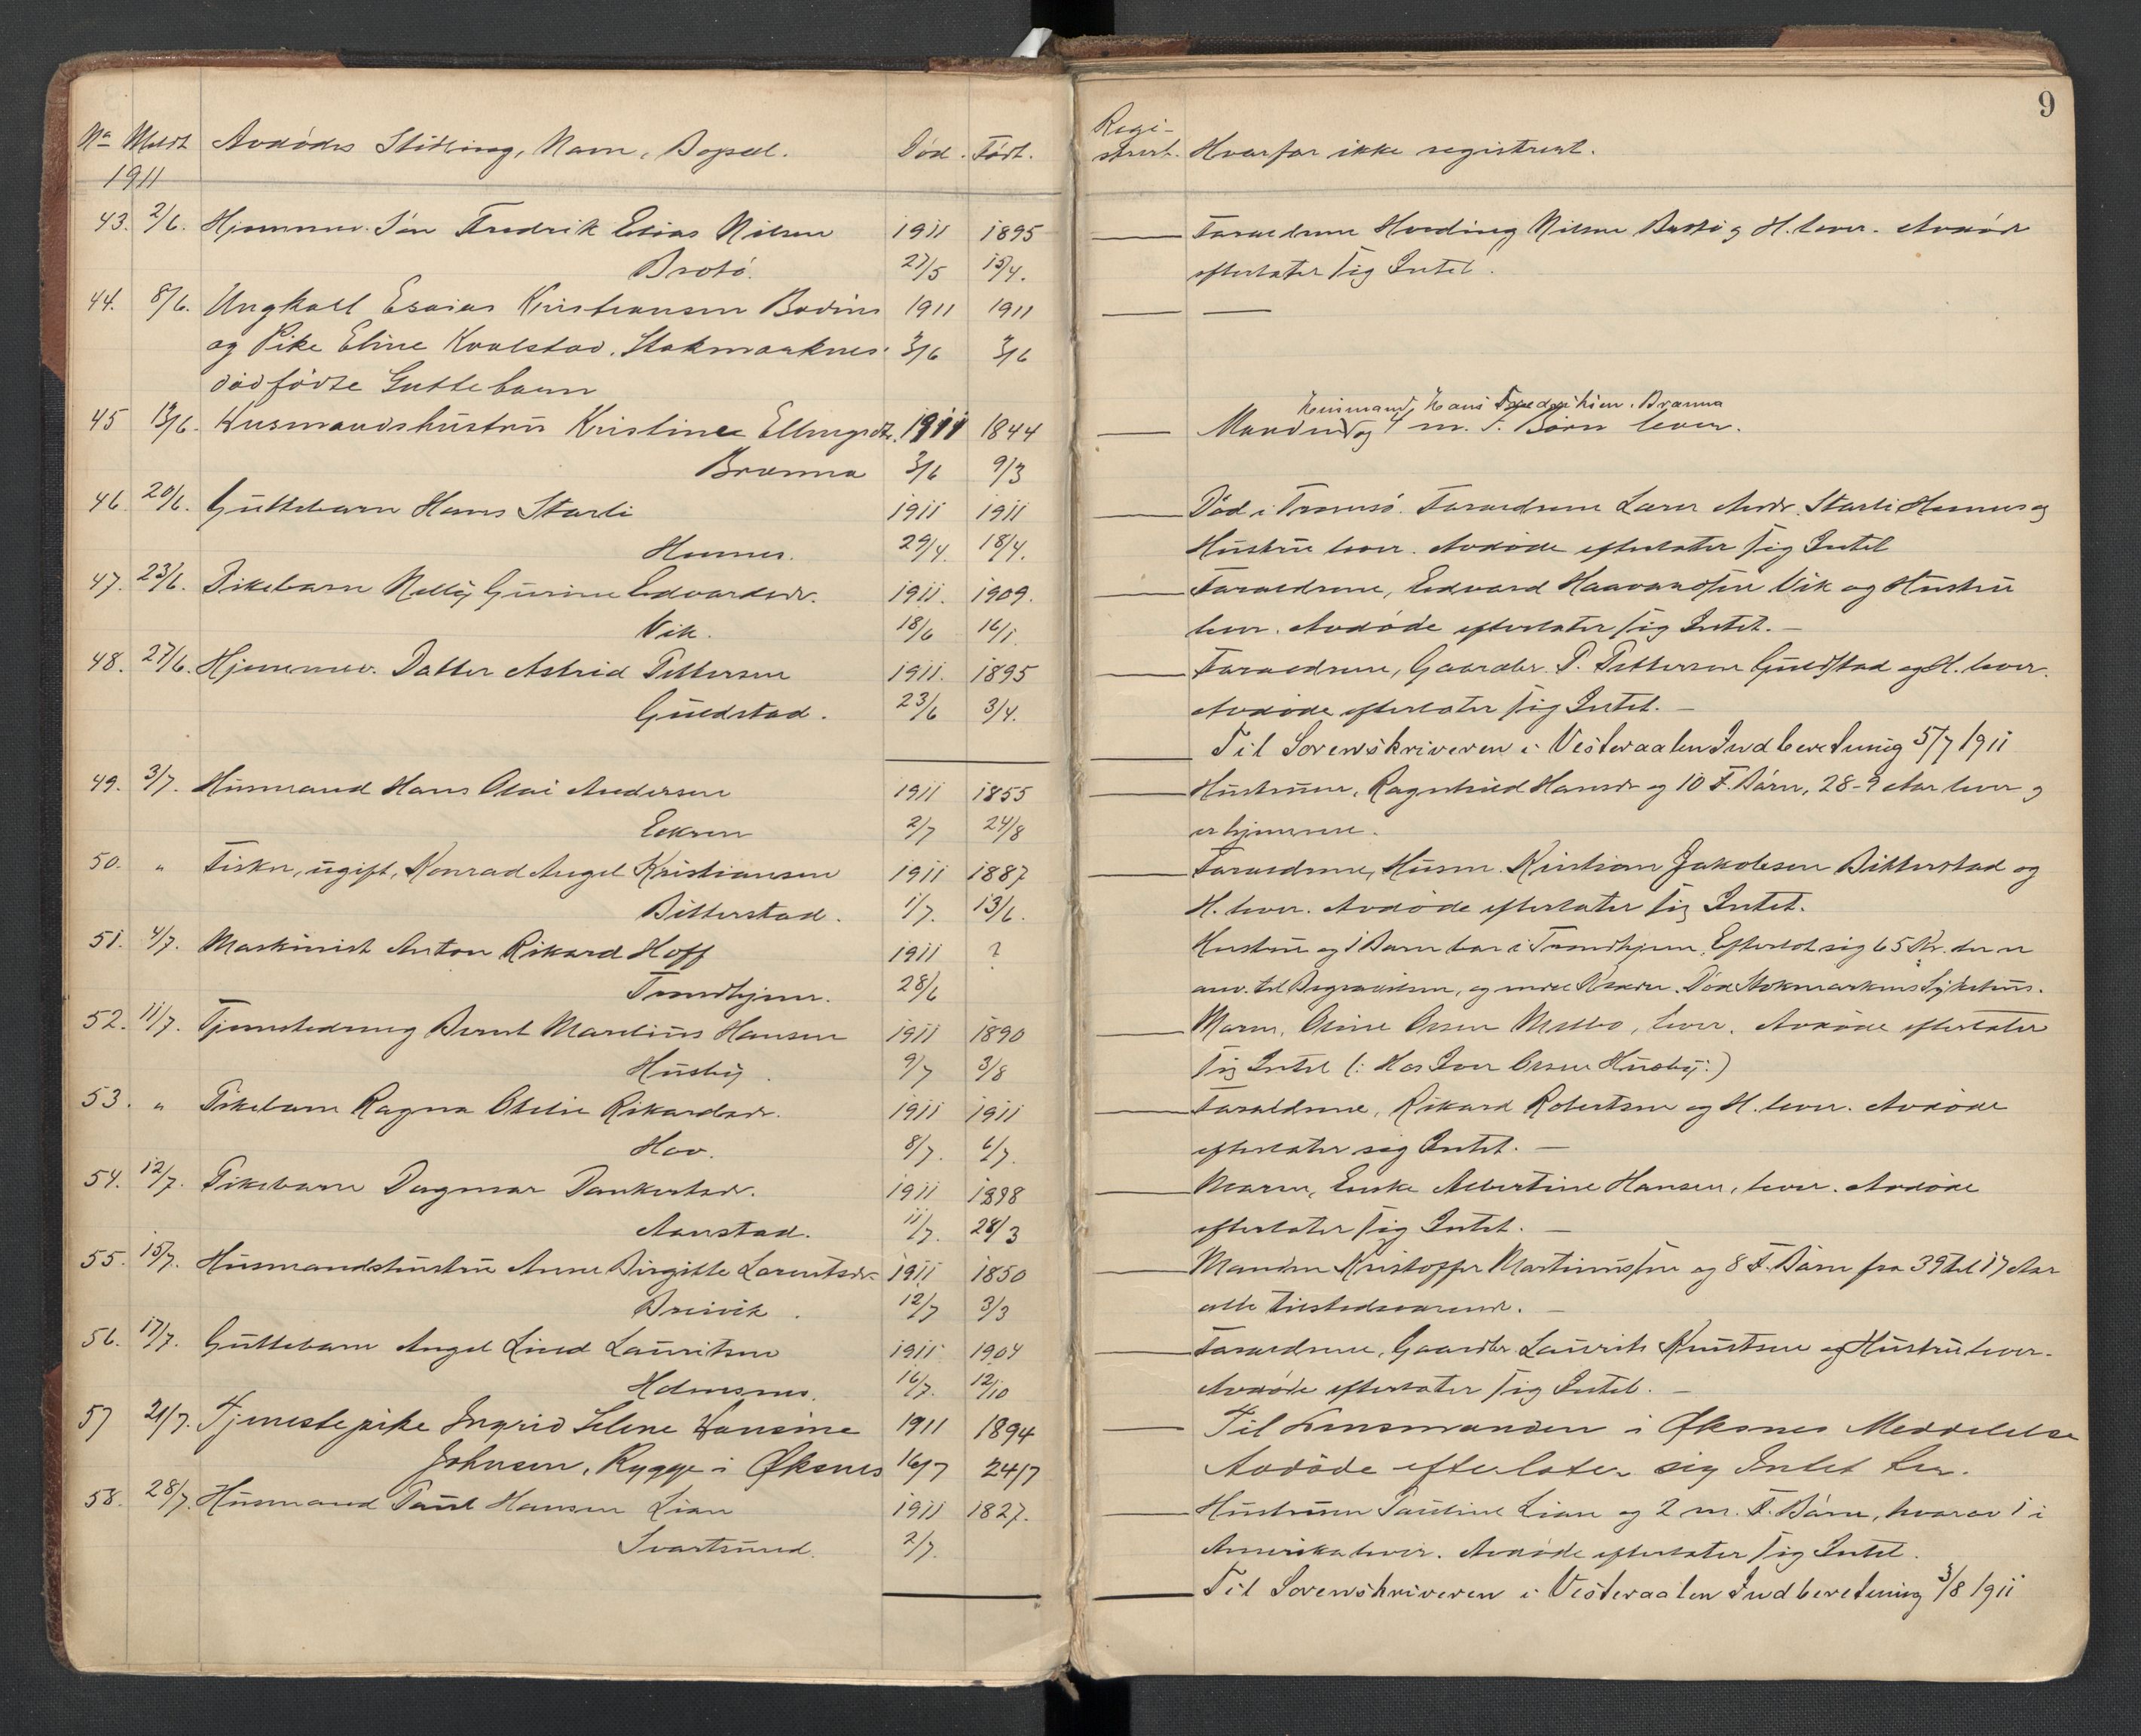 9
No Meldt Avdödes Stilling, Navn, Bopæl. Död. Födt. Regi-
strert. Hvorfor ikke registrert.
1911
43. 2/6. Hjemmev. Sön Fredrik Esias Nilsen 1911 1895 Foraeldrene Hveding Nilsen og H. lever. Avdöde
Brotö. 27/5 15/4. efterlater sig Intet.
44. 8/6. Ungkall Esaias Kristiansen 1911 1911
og Pike Eline Kvalstad, Stokmarknes 3/6 3/6
dödfödte Guttebarn
Husmand, Hans Brænna
45 13/6. Husmandshustru Kristine Ellingsdtr. 1911 1844 Manden og 4 m. F. Börn lever.
Brænna 3/6 9/3
46. 20/6. Guttebarn Hans Starli 1911 1911 Död i Tromsö. Foraeldrene Lærer Andr. Starli Hennes og
Hennes. 29/4. 18/4. Hustru lever. Avdöde efterlater sig Intet
47. 23/6. Pikebarn Nelly Gurine Edvardsdr. 1911. 1909. Foraeldrene, Edvard Haavardsen Vik og Hustru
Vik. 18/6 16/1. lever. Avdöde efterlater sig Intet. —
48. 27/6. Hjemmev. Datter Astrid Pettersen 1911. 1895 Foraeldrene, Gaardbr. P. Pettersen Guldstad og H. lever.
Guldstad. 23/6 3/4. Avdöde efterlater sig Intet. —
Til Sorenskriveren i Vesteraalen Indberetning 5/7 1911
49. 3/7. Husmand Hans Olai Andersen 1911 1855 Hustruen, Ragnhild Hansdr og 10 F. Börn, 28-9 Aar lever og
Eekren 2/7 24/8 er hjemme.
50. " Fisker, ugift, Konrad Angel Kristiansen 1911 1887 Foraeldrene, Husm. Kristian Jakobsen Bitterstad og
Bitterstad. 1/7. 13/6. H. lever. Avdöde efterlater sig Intet.
51. 4/7. Maskinist Anton Rikard Hoff 1911 ? Hustru og 1 Barn bor i Trondhjem. Efterlot sig 65 Kr. der er
Trondhjem. 28/6 anv. til Begravelsen, og endel Klæder. Död Stokmarknes Sykehus.
52. 11/7. Tjenestedreng Bernt Mareliús Hansen 1911 1890 Moren, Oline Olsen Melbo, lever. Avdöde efterlater
Husby. 9/7 3/8 sig Intet (: Hos Iver Olsen Husby:)
53. " Pikebarn Ragna Otelie Rikardsdr. 1911 1911 Foraeldrene, Rikard Robertsen og H. lever. Avdöde
Hov. 8/7. 6/7. efterlater sig Intet. —
54. 12/7. Pikebarn Dagmar Dankertsdr. 1911 1898 Moren, Enke Albertine Hansen, lever. Avdöde
Aanstad. 11/7. 28/3 efterlater sig Intet. —
55. 15/7. Husmandshustru Anne Birgitte Larentsdr 1911 1850 Manden Kristoffer Martinussen og 8 F. Börn fra 39 til 17 Aar
Breivik. 12/7 3/3 alle tilstedeværende. —
56. 17/7. Guttebarn Angel Lind Lauritsen 1911 1904 Foraeldrene, Gaardbr. Laurits Knutsen og Hustru lever.
Holmsnes. 16/7. 12/10 Avdöde efterlater sig Intet. —
57 21/7. Tjenestepike Ingrid Selene Hansine 1911 1894 Til Lensmanden i Øksnes Meddelelse
Johnsen, Rygge i Øksnes 16/7 24/7 Avdöde efterlater sig Intet her.
58. 28/7. Husmand Paul Hansen Lian 1911 1827. Hustruen Pauline Lian og 2 m. F. Börn, hvorav 1 i
Svartsund. 2/7. Amerika lever. Avdöde efterlater sig Intet.
Til Sorenskriveren i Vesteraalen Indberetning 3/8 1911